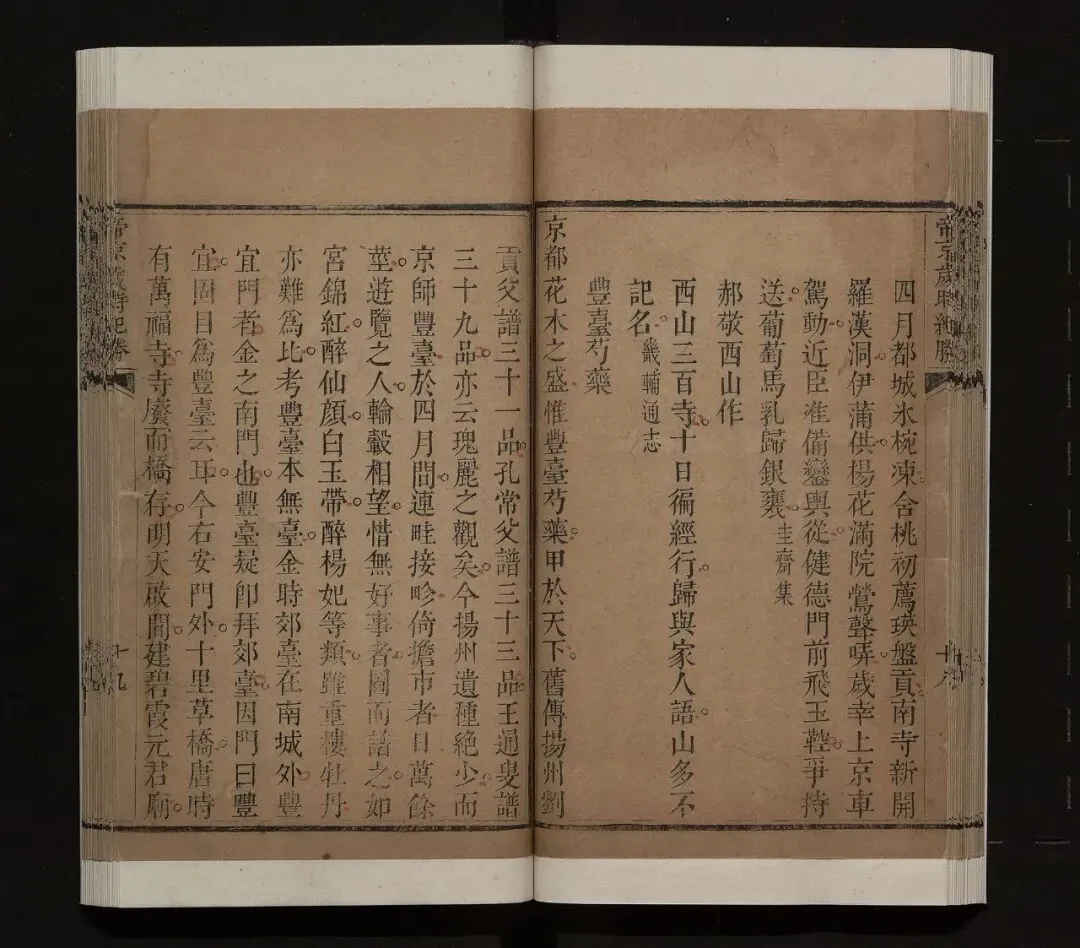 帝京歲時紀勝
十八
四月都城氷椀凍舍桃初薦瑛盤貢南寺新開
羅漢洞伊蒲供楊花滿院鶯聲哢歲幸上京車
駕動近臣准備鑾輿從健德門前飛玉鞚爭持
送葡萄馬乳歸銀甕圭齋集
郝敬西山作
西山三百寺十日徧經行歸與家人語山多不
記名畿輔通志
豐臺芍藥
京都花木之盛惟豐臺芍藥甲於天下舊傳揚州劉
貢父譜三十一品孔常父譜三十三品王通叟譜
三十九品亦云瑰麗之觀矣今揚州遺種絕少而
京師豐臺於四月間連畦接畛倚擔市者日萬餘
莖遊覽之人輪轂相望惜無好事者圖而譜之如
宮錦紅醉仙顏白玉帶醉楊妃等類雖重樓牡丹
亦難爲比考豐臺本無臺金時郊臺在南城外豐
宜門者金之南門也豐臺疑卽拜郊臺因門曰豐
宜固目爲豐臺云耳今右安門外十里草橋唐時
有萬福寺寺廢而橋存明天啟間建碧霞元君廟
帝京歲時紀勝
十九